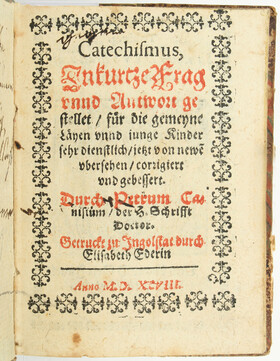 Catechismus,
Jnkurtze Frag
vnnd Antwort ge-
stellet / für die gemeyne
Läyen vnnd iunge Kinder
sehr dienstlich / jetzt von newē
vbersehen / corrigiert
vnd gebessert.
Durch Petrum Ca-
nisium / der H. Schrifft
Doctor.
Getruckt zu Ingolstat durch
Elisabeth Ederin
Anno M. D. XCVIII.